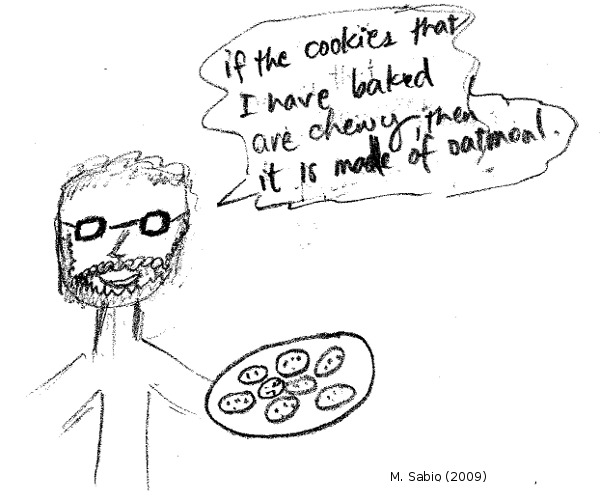 if the cookies that
I have baked
are chewy, then
it is made of oatmeal.
M. Sabio (2009)